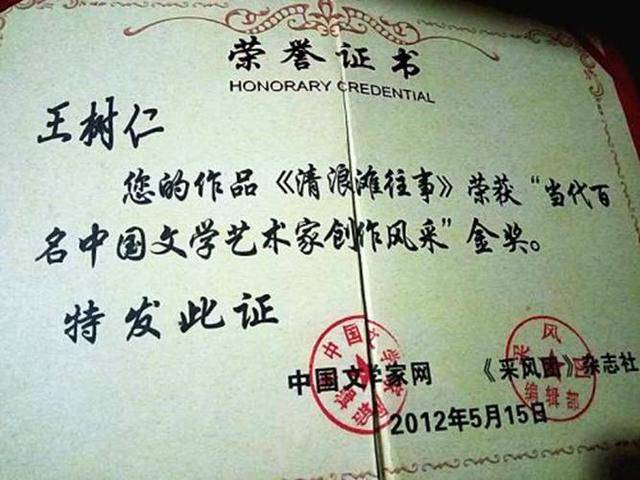 荣誉证书
HONORARY CREDENTIAL
王树仁
您的作品《清浪滩往事》荣获“当代百
名中国文学艺术家创作风采”金奖。
特发此证
中国文学家网 《采风团》杂志社
2012年5月15日
中国文学家
采风
编辑部